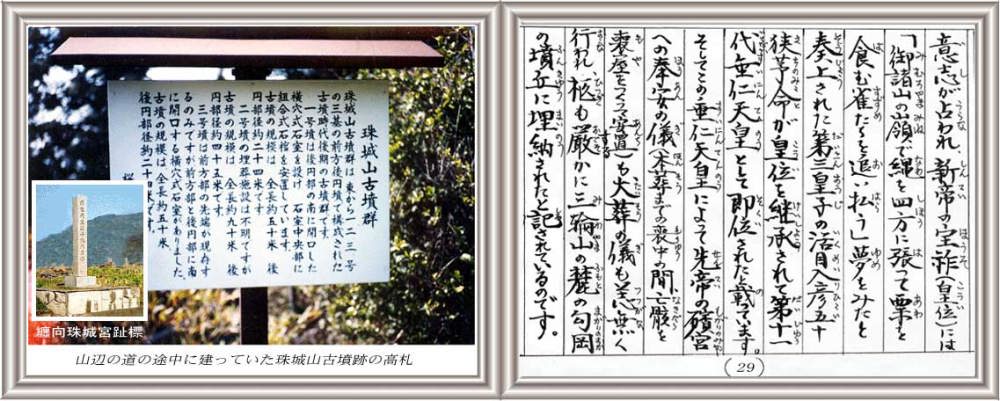 珠城山古墳群
珠城山古墳群は東から一・二・三号
の三基の前方後円墳で構成された
古墳時代後期の古墳群です。
一号墳は後円部の南に開口した
横穴式石室を設け 石室中央部に
組合式石棺を安置しています。
古墳の規模は 全長約五十米 後
円部径約二十四米です。
二号墳の埋葬施設は不明ですが
古墳の規模は 全長約九十米 後
円部径約四十五米です。
三号墳は前方部の先端が現存す
るのみですが前方部と後円部に南
に開口する横穴式石室がありました。
古墳の規模は全長約五十米
後円部径約二十四米です。
桜
纏向珠城宮趾標
山辺の道の途中に建っていた珠城山古墳跡の高札
意志が占われ、新帝の宝祚(皇位)には
「御諸山の嶺で縄を四方に張って粟を
食む雀たちを追い払う」夢をみたと
奏上された第三皇子の活目入彦五十
狭茅命が皇位を継承されて第十一
代垂仁天皇として即位された載ています。
そしてこの垂仁天皇によって先帝の殯宮
への奉安の儀(本葬までの喪中の間、亡骸を
喪屋をつくって安置する)も大葬の儀も恙無く
行われ、柩も厳かに三輪山の麓の勾岡
の墳丘に埋納されたと記されているのです。
(29)